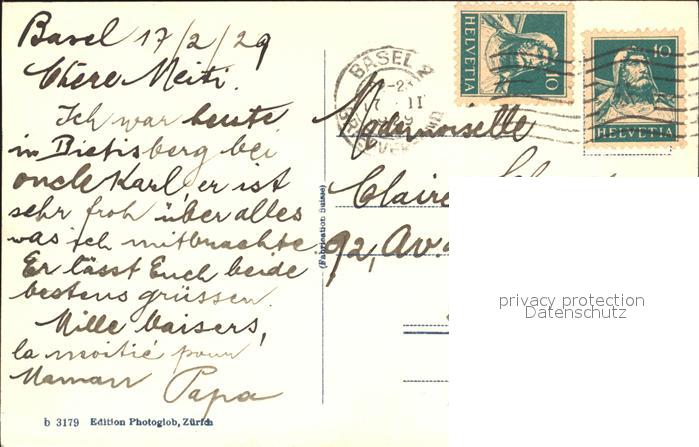 Basel 17/2/29
Chère Meiti.
Ich war heute
in Bietisberg bei
oncle Karl, er ist
sehr froh über alles
was ich mitbrachte.
Er lässt Euch beide
bestens grüssen.
Mille baisers,
la moitié pour
Maman Papa
b 3179 Edition Photoglob, Zürich
(Fabrication Suisse)
BASEL 2
HELVETIA 10
10 HELVETIA
Mademoiselle
Claire
92, Av.
privacy protection
Datenschutz